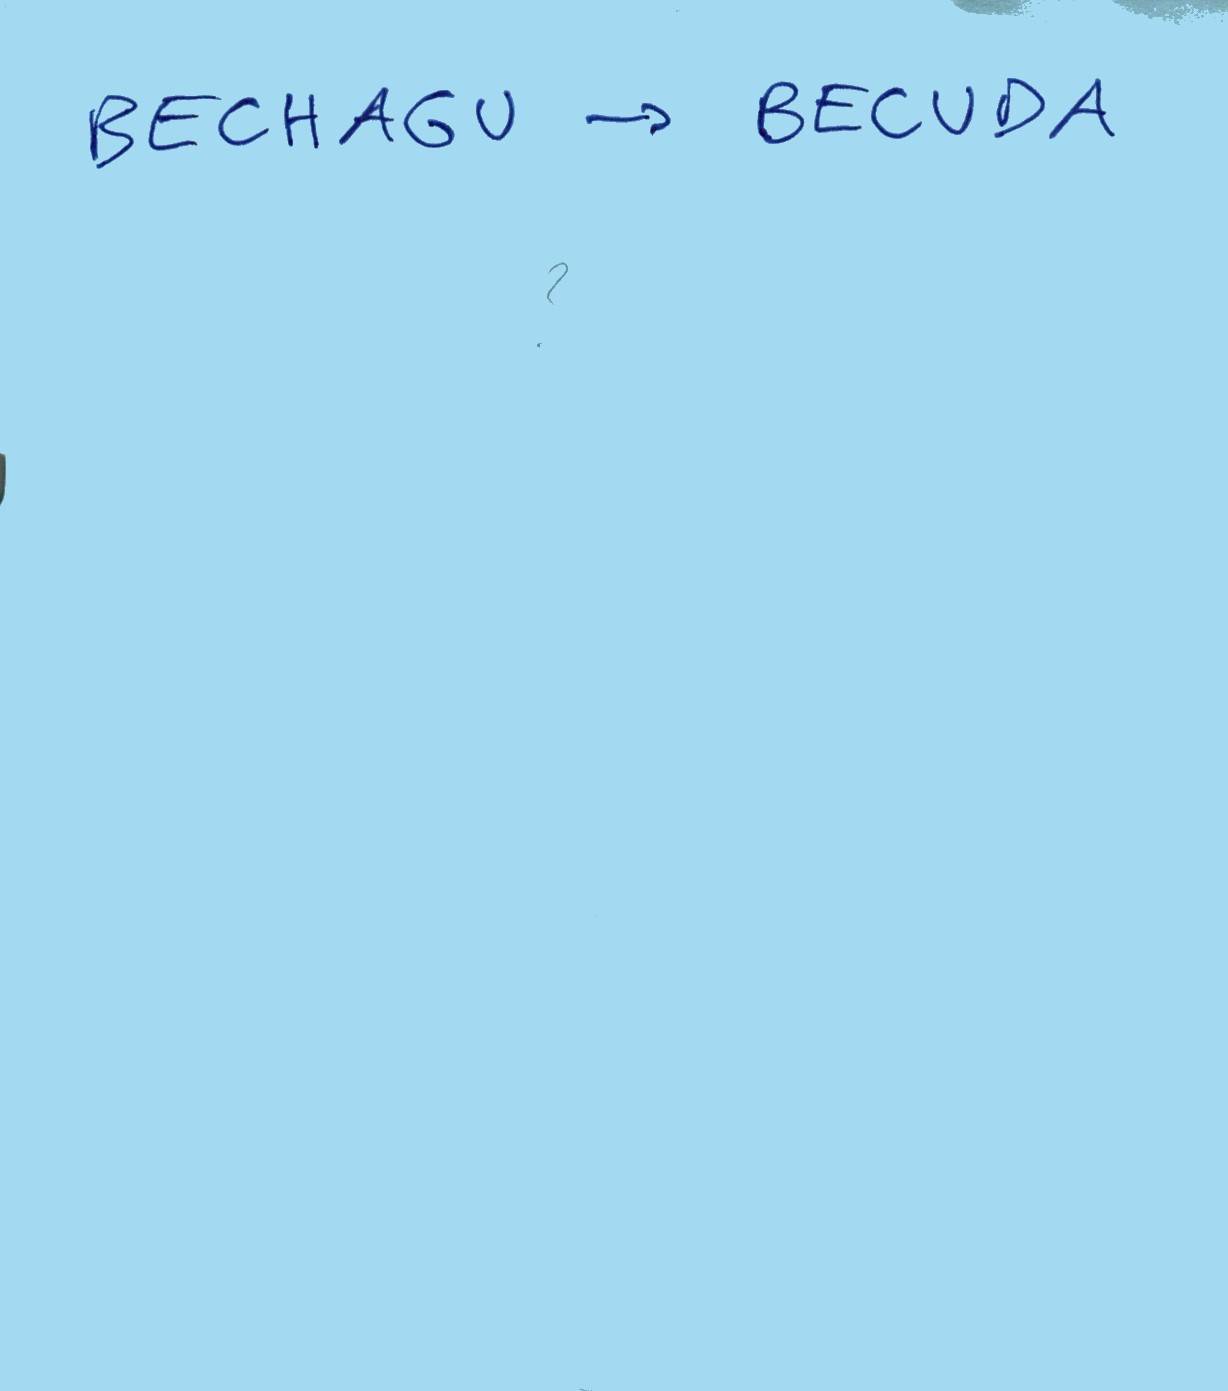 BECHAGU → BECUDA
?